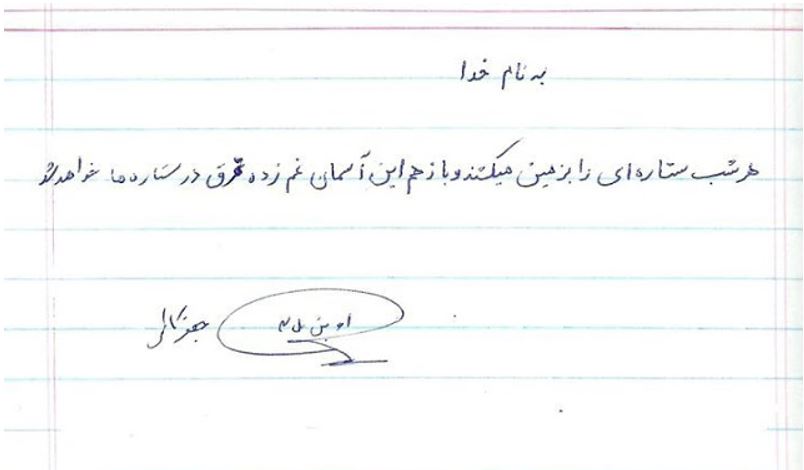 به نام خدا
هر شب ستاره‌ای را بزمین میکشند و باز هم این آسمان غم زده غرق در ستاره ها خواهد شد
اوین